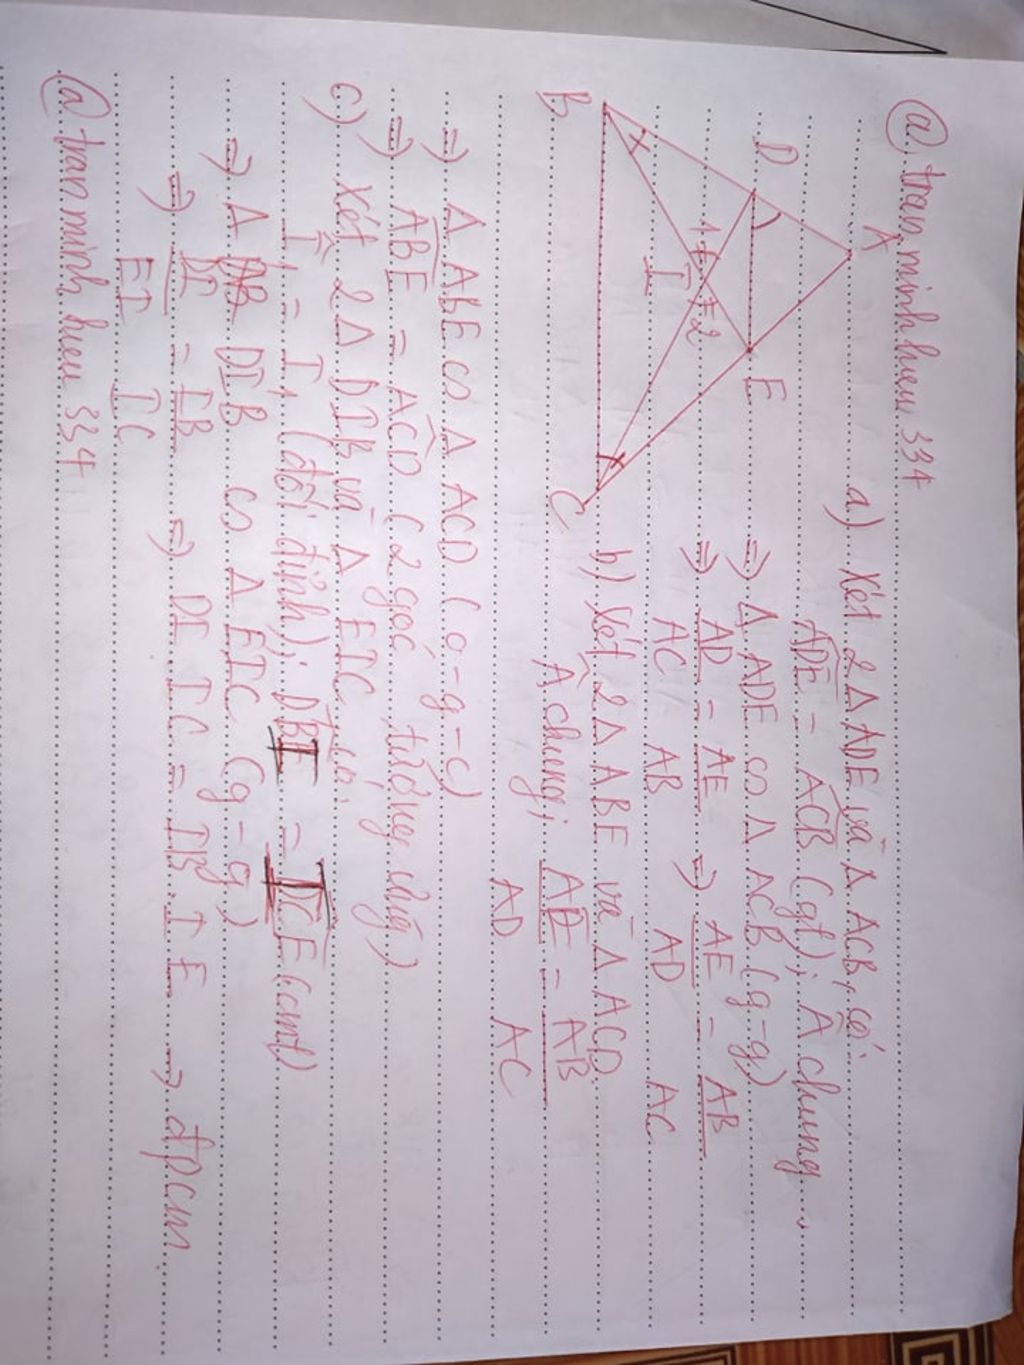 @ tranminhhieu334
a) Xét 2 Δ ADE và Δ ACB, có:
ADE = ACB (gt); Â chung
⇒ Δ ADE ∽ Δ ACB (g-g)
⇒ AD/AC = AE/AB ⇒ AE/AD = AB/AC
b) Xét 2 Δ ABE và Δ ACD
Â chung; AE/AD = AB/AC
⇒ Δ ABE ∽ Δ ACD (c-g-c)
⇒ ABE = ACD (2 góc tương ứng)
c) Xét 2 Δ DIB và Δ EIC có:
(đối đỉnh); DBI = ICE (cmt)
⇒ Δ DIB ∽ Δ EIC (g-g)
⇒ DI/EI = IB/IC ⇒ DI.IC = IB.IE → đpcm.
@ tranminhhieu334
A
D
E
1
2
I
B
C